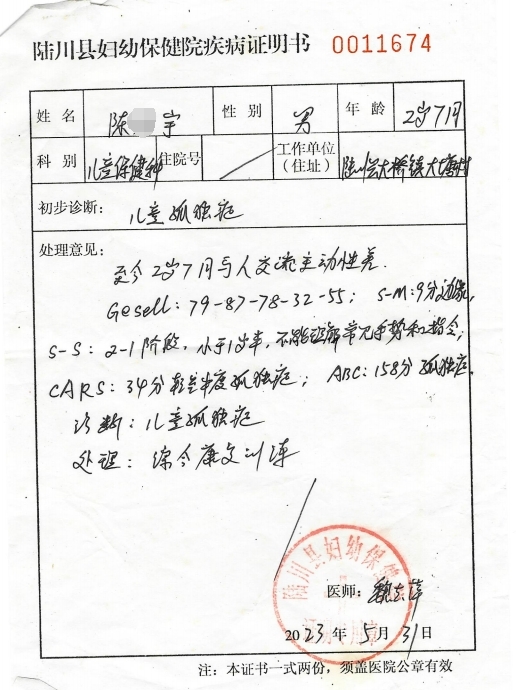 陆川县妇幼保健院疾病证明书 0011674
姓名 陈 宇 性别 男 年龄 2岁7月
科别 儿童保健科 住院号 工作单位(住址) 陆川县大桥镇大塘村
初步诊断: 儿童孤独症
处理意见:
至今2岁7月与人交流主动性差.
Gesell: 79-87-78-32-55; S-M: 9分边缘,
S-S: 2-1阶段, 小于1岁半, 不能理解常见手势和指令;
CARS: 34分轻至中度孤独症; ABC: 158分孤独症.
诊断: 儿童孤独症
处理: 综合康复训练
陆川县妇幼保健院
医师: 魏志萍
2023年5月31日
注:本证书一式两份,须盖医院公章有效